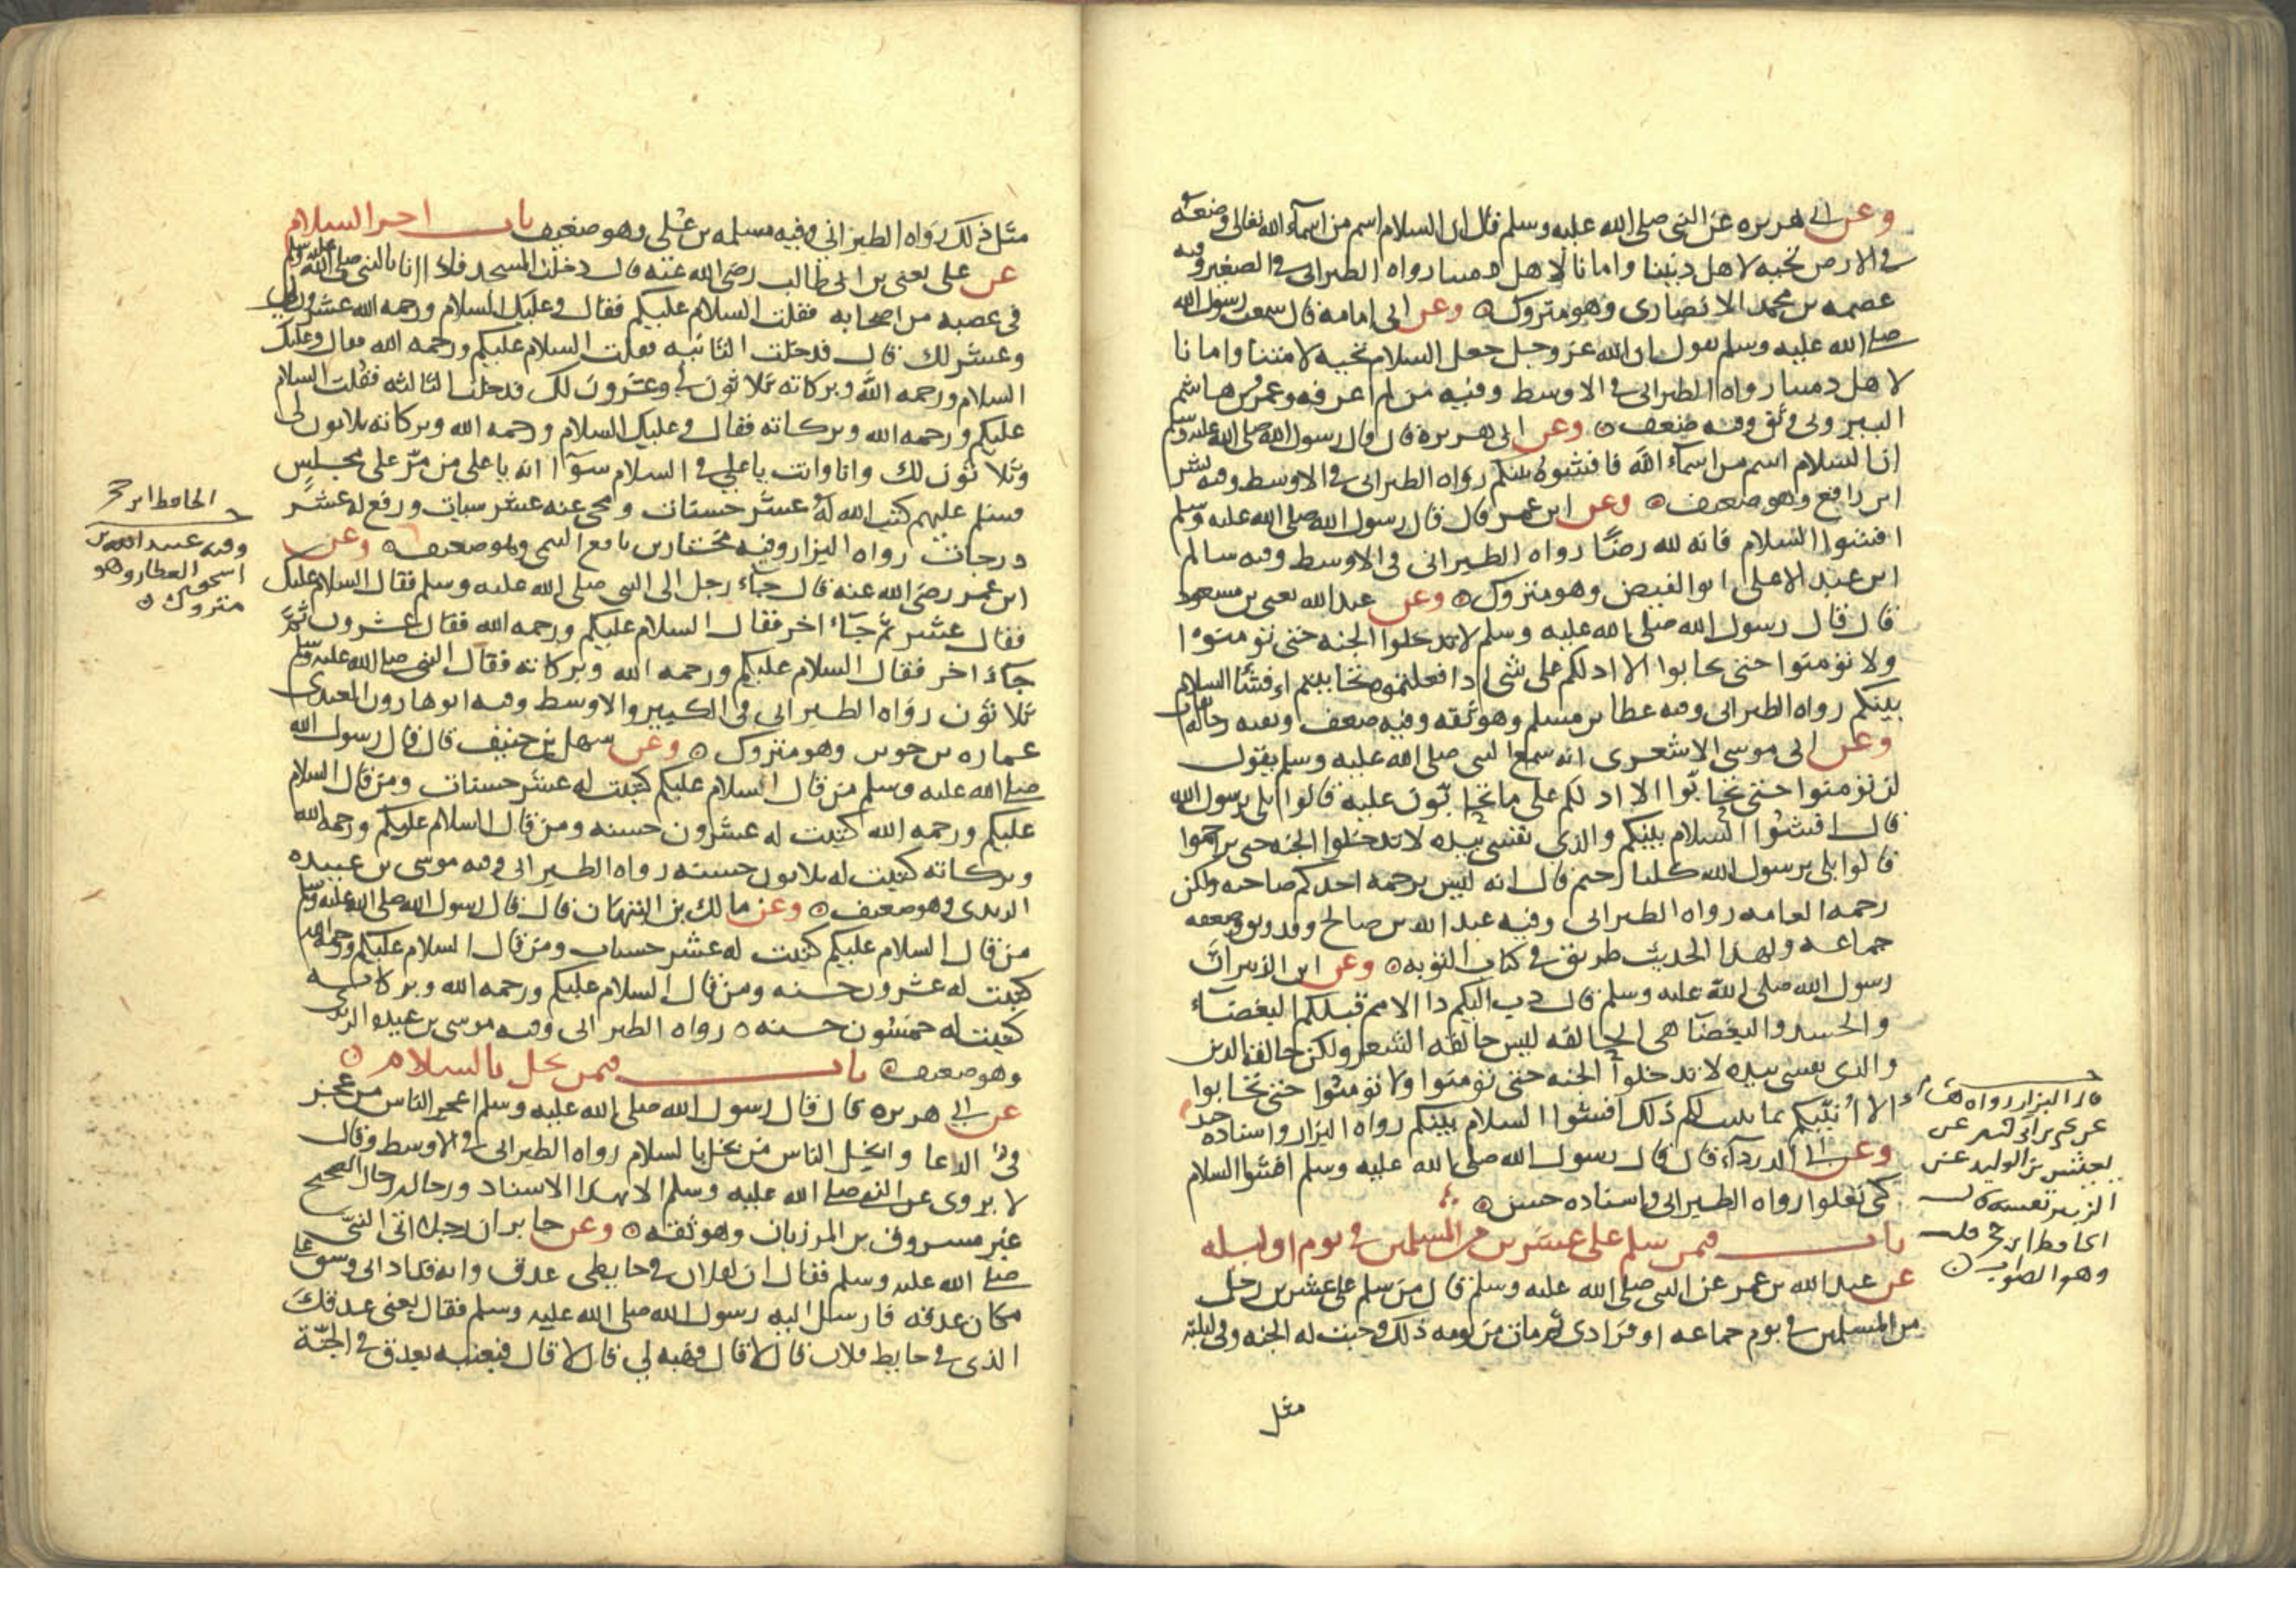 وعن ابي هريره عن النبي صلى الله عليه وسلم قال ان السلام اسم من اسماء الله تعالى وضعه
في الارض تحيه لاهل ديننا وامانا لاهل ذمتنا رواه الطبراني في الصغير وفيه
عصمه بن محمد الانصاري وهو متروك ٥ وعن ابي امامه قال سمعت رسول الله
صلى الله عليه وسلم يقول ان الله عز وجل جعل السلام تحيه لامتنا وامانا
لاهل ذمتنا رواه الطبراني في الاوسط وفيه من لم اعرفه وعمرو بن هاشم
البيروتي وثق وفيه ضعف ٥ وعن ابي هريرة قال قال رسول الله صلى الله عليه وسلم
ان السلام اسم من اسماء الله فافشوه بينكم رواه الطبراني في الاوسط وفيه بشر
ابن رافع وهو ضعيف ٥ وعن ابن عمر قال قال رسول الله صلى الله عليه وسلم
افشوا السلام فانه لله رضًا رواه الطبراني في الاوسط وفيه سالم
ابن عبد الاعلى ابو الفيض وهو متروك ٥ وعن عبد الله يعني بن مسعود
قال قال رسول الله صلى الله عليه وسلم لا تدخلوا الجنه حتى تؤمنوا
ولا تؤمنوا حتى تحابوا الا ادلكم على شي اذا فعلتموه تحاببتم افشا السلام
بينكم رواه الطبراني وفيه عطا بن مسلم وهو ثقه وفيه ضعف وبقيه رجاله ثقات
وعن ابي موسى الاشعري انه سمع النبي صلى الله عليه وسلم يقول
لن تؤمنوا حتى تحابّوا الا ادلكم على ما تحابّون عليه قالوا بلى يرسول الله
قال افشوا السلام بينكم والذي نفسي بيده لا تدخلوا الجنه حتى تراحموا
قالوا بلى يرسول الله كلنا رحيم قال انه ليس برحمه احدكم صاحبه ولكن
رحمه العامه رواه الطبراني وفيه عبد الله بن صالح وقد وثق وضعفه
جماعه ولهذا الحديث طريق في كتاب التوبه ٥ وعن ابن الزبير ان
رسول الله صلى الله عليه وسلم قال دب اليكم دا الامم قبلكم البغضاء
والحسد والبغضا هي الحالقه ليس حالقه الشعر ولكن حالقه الدين
والذي نفسي بيده لا تدخلوا الجنه حتى تؤمنوا ولا تؤمنوا حتى تحابوا
الا انبّيكم بما يثبت لكم ذلك افشوا السلام بينكم رواه البزار واسناده جيد
وعن ابي الدرداء قال قال رسول الله صلى الله عليه وسلم افشوا السلام
كي تعلوا رواه الطبراني واسناده حسن ٥
باب فيمن سلم على عشرين من المسلمين في يوم او ليله
عن عبد الله بن عمر عن النبي صلى الله عليه وسلم قال من سلم على عشرين رجل
من المسلمين في يوم جماعه او فرادى ثم مات من يومه ذلك وجبت له الجنه وفي ليلته
مثل
قال البزار رواه
عن يحيى بن ابي كثير عن
يعيش بن الوليد عن
الزبير نفسه قال
الحافظ ابن حجر قلت
وهو الصواب ٥
مثل ذلك رواه الطبراني وفيه مسلمه بن علي وهو ضعيف باب اجر السلام
عن علي يعني بن ابي طالب رضي الله عنه قال دخلت المسجد فاذا انا بالنبي صلى الله عليه وسلم
في عصبه من اصحابه فقلت السلام عليكم فقال وعليك السلام ورحمه الله عشرون لي
وعشر لك قال فدخلت الثانيه فقلت السلام عليكم ورحمه الله فقال وعليك
السلام ورحمه الله وبركاته ثلاثون لي وعشرون لك فدخلت الثالثه فقلت السلام
عليكم ورحمه الله وبركاته فقال وعليك السلام ورحمه الله وبركاته ثلاثون لي
وثلاثون لك وانا وانت يا علي في السلام سوآ انه يا علي من مرّ على مجلس
فسلم عليهم كتب الله له عشر حسنات ومحى عنه عشر سيات ورفع له عشر
درجات رواه البزار وفيه مختار بن نافع التيمي وهو ضعيف ٥ وعن
ابن عمر رضي الله عنه قال جاء رجل الى النبي صلى الله عليه وسلم فقال السلام عليك
فقال عشر ثم جاء اخر فقال السلام عليكم ورحمه الله فقال عشرون ثمّ
جاء اخر فقال السلام عليكم ورحمه الله وبركاته فقال النبي صلى الله عليه وسلم
ثلاثون رواه الطبراني في الكبير والاوسط وفيه ابو هارون العبدي
عماره بن جوين وهو متروك ٥ وعن سهل بن حنيف قال قال رسول الله
صلى الله عليه وسلم من قال السلام عليكم كتبت له عشر حسنات ومن قال السلام
عليكم ورحمه الله كتبت له عشرون حسنه ومن قال السلام عليكم ورحمه الله
وبركاته كتبت له ثلاثون حسنه رواه الطبراني وفيه موسى بن عبيده
الربذي وهو ضعيف ٥ وعن مالك بن التيهان قال قال رسول الله صلى الله عليه وسلم
من قال السلام عليكم كتبت له عشر حسنات ومن قال السلام عليكم ورحمه الله
كتبت له عشرون حسنه ومن قال السلام عليكم ورحمه الله وبركاته
كتبت له خمسون حسنه ٥ رواه الطبراني وفيه موسى بن عبيده الربذي
وهو ضعيف ٥ باب فيمن بخل بالسلام ٥
عن ابي هريره قال قال رسول الله صلى الله عليه وسلم اعجز الناس من عجز
في الدعا وابخل الناس من بخل بالسلام رواه الطبراني في الاوسط وقال
لا يروى عن النبي صلى الله عليه وسلم الا بهذا الاسناد ورجاله رجال الصحيح
غير مسروق بن المرزبان وهو ثقه ٥ وعن جابر ان رجلا اتى النبي
صلى الله عليه وسلم فقال ان لفلان في حايطي عذق وانه قد اذاني وشق علي
مكان عذقه فارسل اليه رسول الله صلى الله عليه وسلم فقال بعني عذقك
الذي في حايط فلان قال لا قال فهبه لي قال لا قال فبعنيه بعذق في الجنّة
الحافظ ابن حجر
وفيه عبيد الله بن
اسحق العطار وهو
متروك ٥